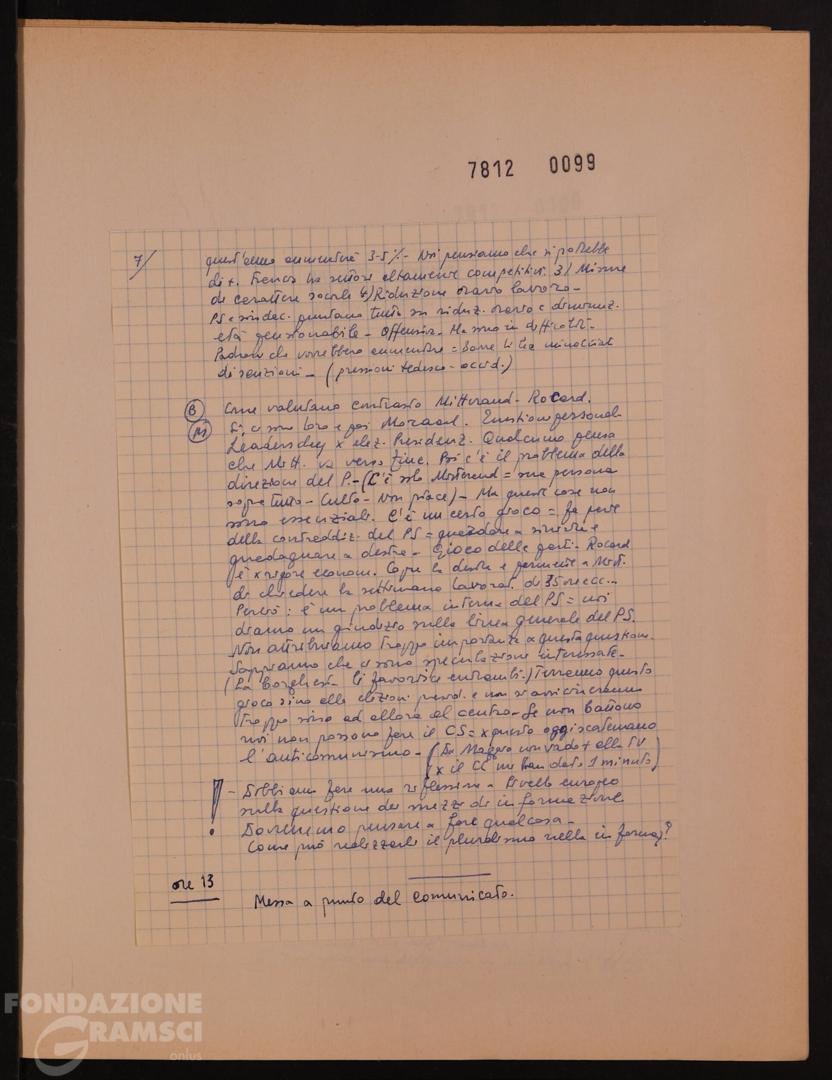 7812 0099
7/
quest'anno aumenterà 3-5%- Noi pensiamo che si potrebbe
di +. Francia ha settori altamente competitivi. 3) Misure
di carattere sociale 4) Riduzione orario lavoro-
PS e sindac. puntano tutto su riduz. orario e diminuz.
età pensionabile - Offensiva. Ma sono in difficoltà-
Padroni che vorrebbero aumentare = Barre li ha minacciati
di sanzioni - (pressioni tedesco-occid.)
B Come valutano contrasto Mitterand-Rocard.
M Ci sono loro e poi Mauroy. Questioni personali
Leadership x elez. Presidenz. Qualcuno pensa
che Mitt. va verso fine. Poi c'è il problema della
direzione del P.- (C'è solo Mitterand = sua persona
sopra tutto - Culto - Non piace) - Ma queste cose non
sono essenziali. C'è un certo gioco = fa parte
della contraddiz. del PS = guardare a sinistra e
guadagnare a destra - Gioco delle parti. Rocard
è x rigore econom. Copre la destra e permette a Mitt.
di chiedere la settimana lavorat. di 35 ore ecc.-
Perciò: è un problema interno del PS = noi
diamo un giudizio sulla linea generale del PS.
Non attribuiamo troppa importanza a questa questione.
Sappiamo che ci sono speculazioni interessate-
(La borghesia li favorisce entrambi.) Terranno questo
gioco sino alle elezioni presid. e non si avvicineranno
troppo sino ad allora al centro- Se non battono
noi non possono fare il CS = x questo oggi scatenano
l'anticomunismo- (Da Maggio non vado + alla TV
(x il CC mi han dato 1 minuto)
! - Dobbiamo fare una riflessione a livello europeo
sulla questione dei mezzi di informazione
Dovremmo pensare a fare qualcosa-
Come può realizzarsi il pluralismo nella informaz?
ore 13
Messa a punto del comunicato.
FONDAZIONE
GRAMSCI
onlus